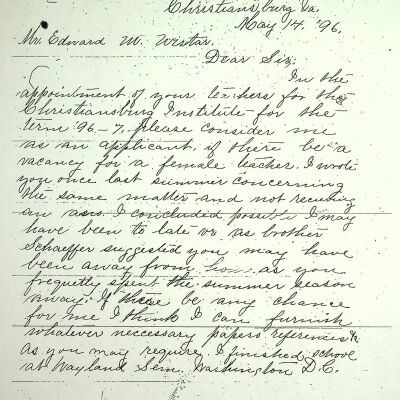 Christiansburg Va.
May 14. '96.
Mr. Edward M. Wistar.
Dear Sir;
In the
appointment of your teachers for the
Christiansburg Institute for the
term '96-7, please consider me
as an applicant, if there be a
vacancy for a female teacher. I wrote
you once last summer concerning
the same matter and not receiving
an ans. I concluded possible I may
have been to late or as brother
Schaeffer suggested you may have
been away from home as you
frequetly spent the summer season
away. If there be any chance
for me I think I can furnish
whatever neccessary papers references &c
as you may require. I finished school
at Wayland Sem. Washington D.C.